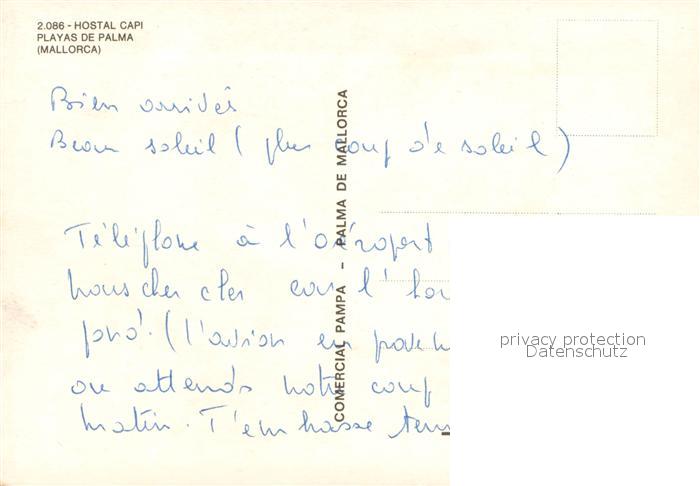 2.086 - HOSTAL CAPI
PLAYAS DE PALMA
(MALLORCA)
Bien arrivés
Beau soleil (plus coup de soleil)
Téléphone à l'aéroport
nous chercher car l'
(l'avion en
on attends notre coup
matin. T'embrasse
COMERCIAL PAMPA - PALMA DE MALLORCA
privacy protection
Datenschutz